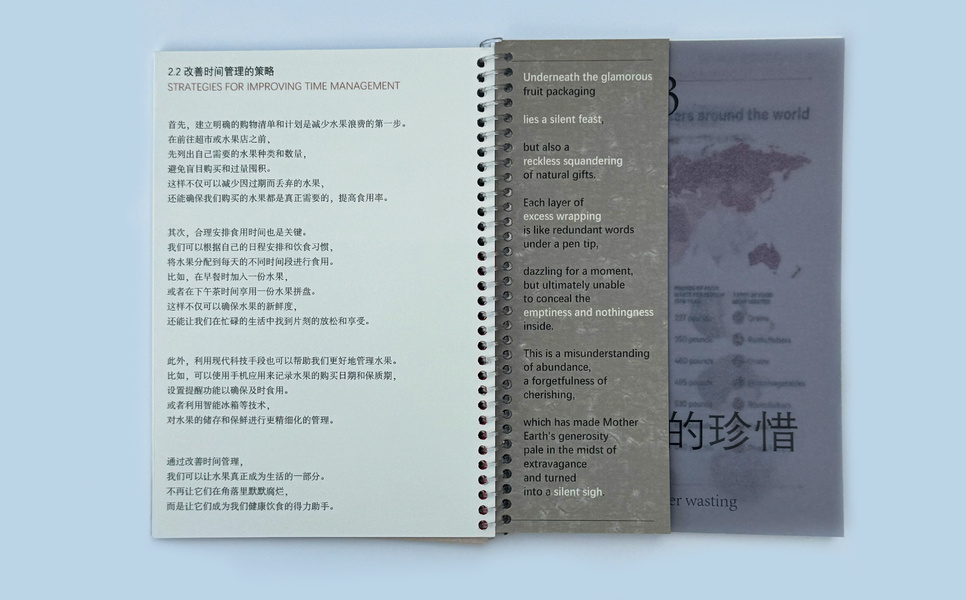 2.2 改善时间管理的策略
STRATEGIES FOR IMPROVING TIME MANAGEMENT
首先，建立明确的购物清单和计划是减少水果浪费的第一步。
在前往超市或水果店之前，
先列出自己需要的水果种类和数量，
避免盲目购买和过量囤积。
这样不仅可以减少因过期而丢弃的水果，
还能确保我们购买的水果都是真正需要的，提高食用率。
其次，合理安排食用时间也是关键。
我们可以根据自己的日程安排和饮食习惯，
将水果分配到每天的不同时间段进行食用。
比如，在早餐时加入一份水果，
或者在下午茶时间享用一份水果拼盘。
这样不仅可以确保水果的新鲜度，
还能让我们在忙碌的生活中找到片刻的放松和享受。
此外，利用现代科技手段也可以帮助我们更好地管理水果。
比如，可以使用手机应用来记录水果的购买日期和保质期，
设置提醒功能以确保及时食用。
或者利用智能冰箱等技术，
对水果的储存和保鲜进行更精细化的管理。
通过改善时间管理，
我们可以让水果真正成为生活的一部分。
不再让它们在角落里默默腐烂，
而是让它们成为我们健康饮食的得力助手。
Underneath the glamorous
fruit packaging
lies a silent feast,
but also a
reckless squandering
of natural gifts.
Each layer of
excess wrapping
is like redundant words
under a pen tip,
dazzling for a moment,
but ultimately unable
to conceal the
emptiness and nothingness
inside.
This is a misunderstanding
of abundance,
a forgetfulness of
cherishing,
which has made Mother
Earth's generosity
pale in the midst of
extravagance
and turned
into a silent sigh.
3
around the world
的珍惜
wasting